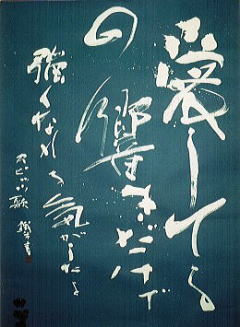 愛してる
の響きだけで
強くなれる気がしたよ
スピッツ歌